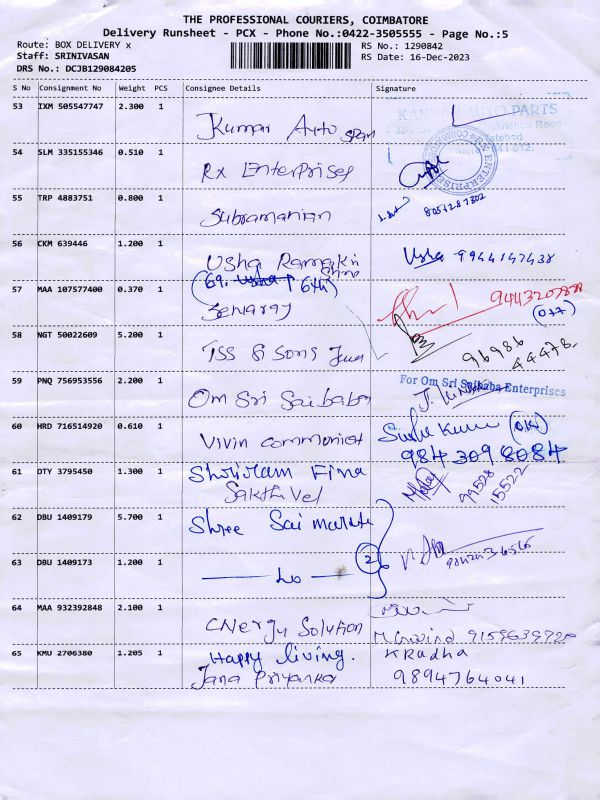 THE PROFESSIONAL COURIERS, COIMBATORE
Delivery Runsheet - PCX - Phone No.:0422-3505555 - Page No.:5
Route: BOX DELIVERY x
RS No.: 1290842
Staff: SRINIVASAN
RS Date: 16-Dec-2023
DRS No.: DCJB129084205
S No Consignment No Weight PCS Consignee Details Signature
53 IXM 505547747 2.300 1 Kumar Auto
KANNAN AUTO PARTS
54 SLM 335155346 0.510 1 Rx Enterprises
55 TRP 4883751 0.800 1 Subramanian
56 CKM 639446 1.200 1 Usha Ramakri Usha 9944147438
57 MAA 107577400 0.370 1
58 NGT 50022609 5.200 1 TSS & Sons
96986
44478
59 PNQ 756953556 2.200 1 Om Sri Saibaba
For Om Sri Saibaba Enterprises
60 HRD 716514920 0.610 1 Vivin Communicat
984 309 8084
61 DTY 3795450 1.300 1 Shriram Fina
Sakthivel
99528
15522
62 DBU 1409179 5.700 1 Shree Sai Maruti
63 DBU 1409173 1.200 1
2
64 MAA 932392848 2.100 1 CNergy Solution
65 KMU 2706380 1.205 1 Happy living. K Radha
Jana Priyanka 9894764041